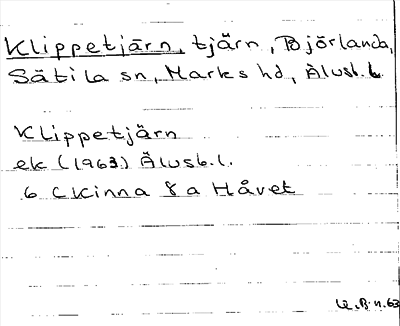 Klippetjärn, tjärn, Björlanda,
Sätila sn, Marks hd, Älvsb. l.
Klippetjärn
ek (1963) Älvsb. l.
6 C Kinna 8 a Håvet